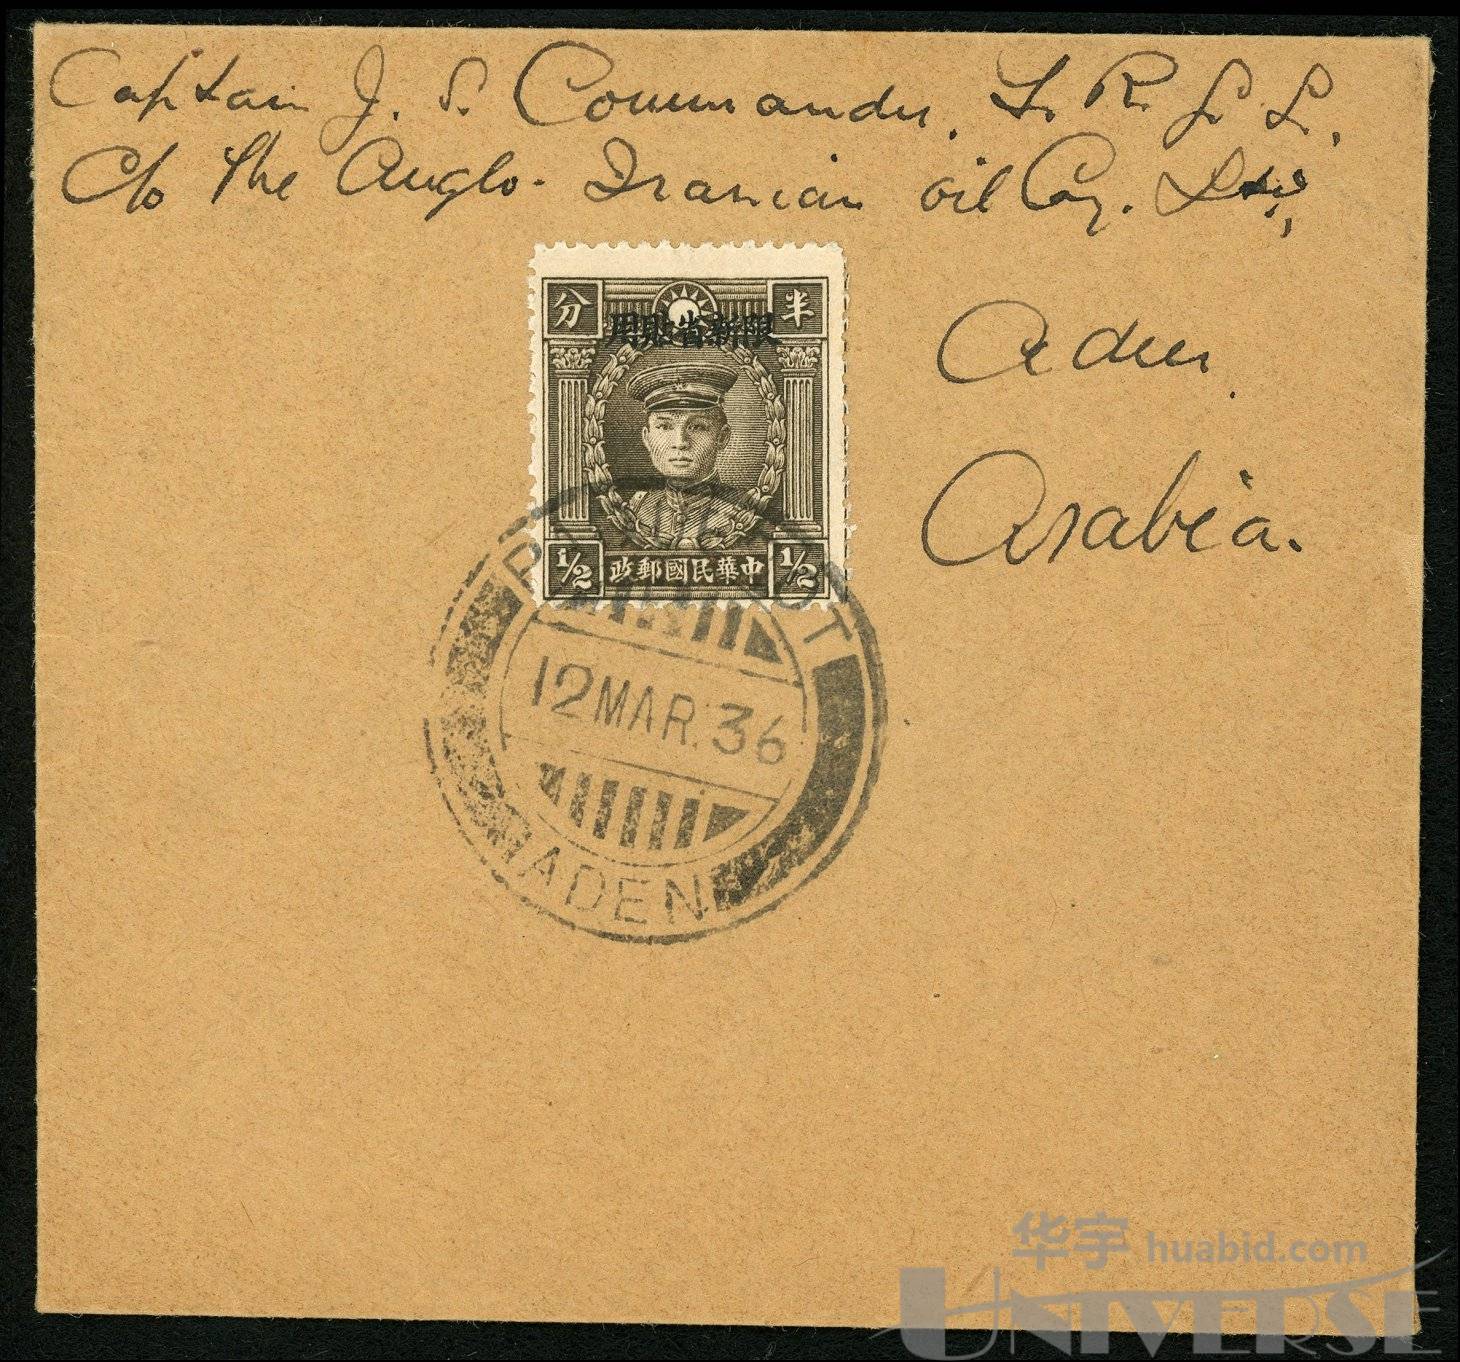 Captain J. S. Commander, F. R. G. S.,
C/o The Anglo-Iranian oil Coy. Ltd.,
Aden,
Arabia.
分 半
用貼省新限
1/2 政郵國民華中 1/2
12 MAR. 36
ADEN
华宇 huabid.com
UNIVERSE